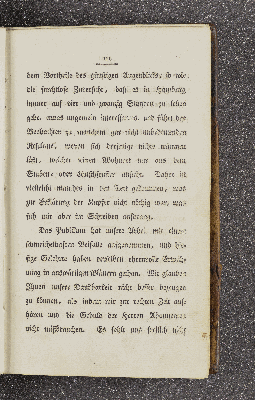 dem Vortheile des günstigen Augenblicks, so wie
die herzlose Zuversicht, daß es in Hamburg
immer auf vier und zwanzig Stunden zu sehen
gebe, etwas ungemein Interessantes, und führt den
Beobachter zu manchem gar nicht unbedeutenden
Resultate, wovon sich derjenige nichts träumen
läßt, welcher einen Wohnort nur aus dem
Stuben- oder
vielleicht manches in den Text gekommen, was
zur Erklärung der Kupfer nicht nöthig war, was
sich mir aber im Schreiben aufdrang.
Das Publikum hat unsere Arbeit mit einem
schmeichelhaften Beifalle aufgenommen, und hie-
sige Gelehrte haben derselben ehrenvolle Erwäh-
nung in auswärtigen Blättern gethan. Wir glauben
Ihnen unsere Dankbarkeit nicht besser bezeugen
zu können, als indem wir zur rechten Zeit auf-
hören und die Geduld der Herren Abonnenten
nicht mißbrauchen. Es fehlt uns freilich nicht